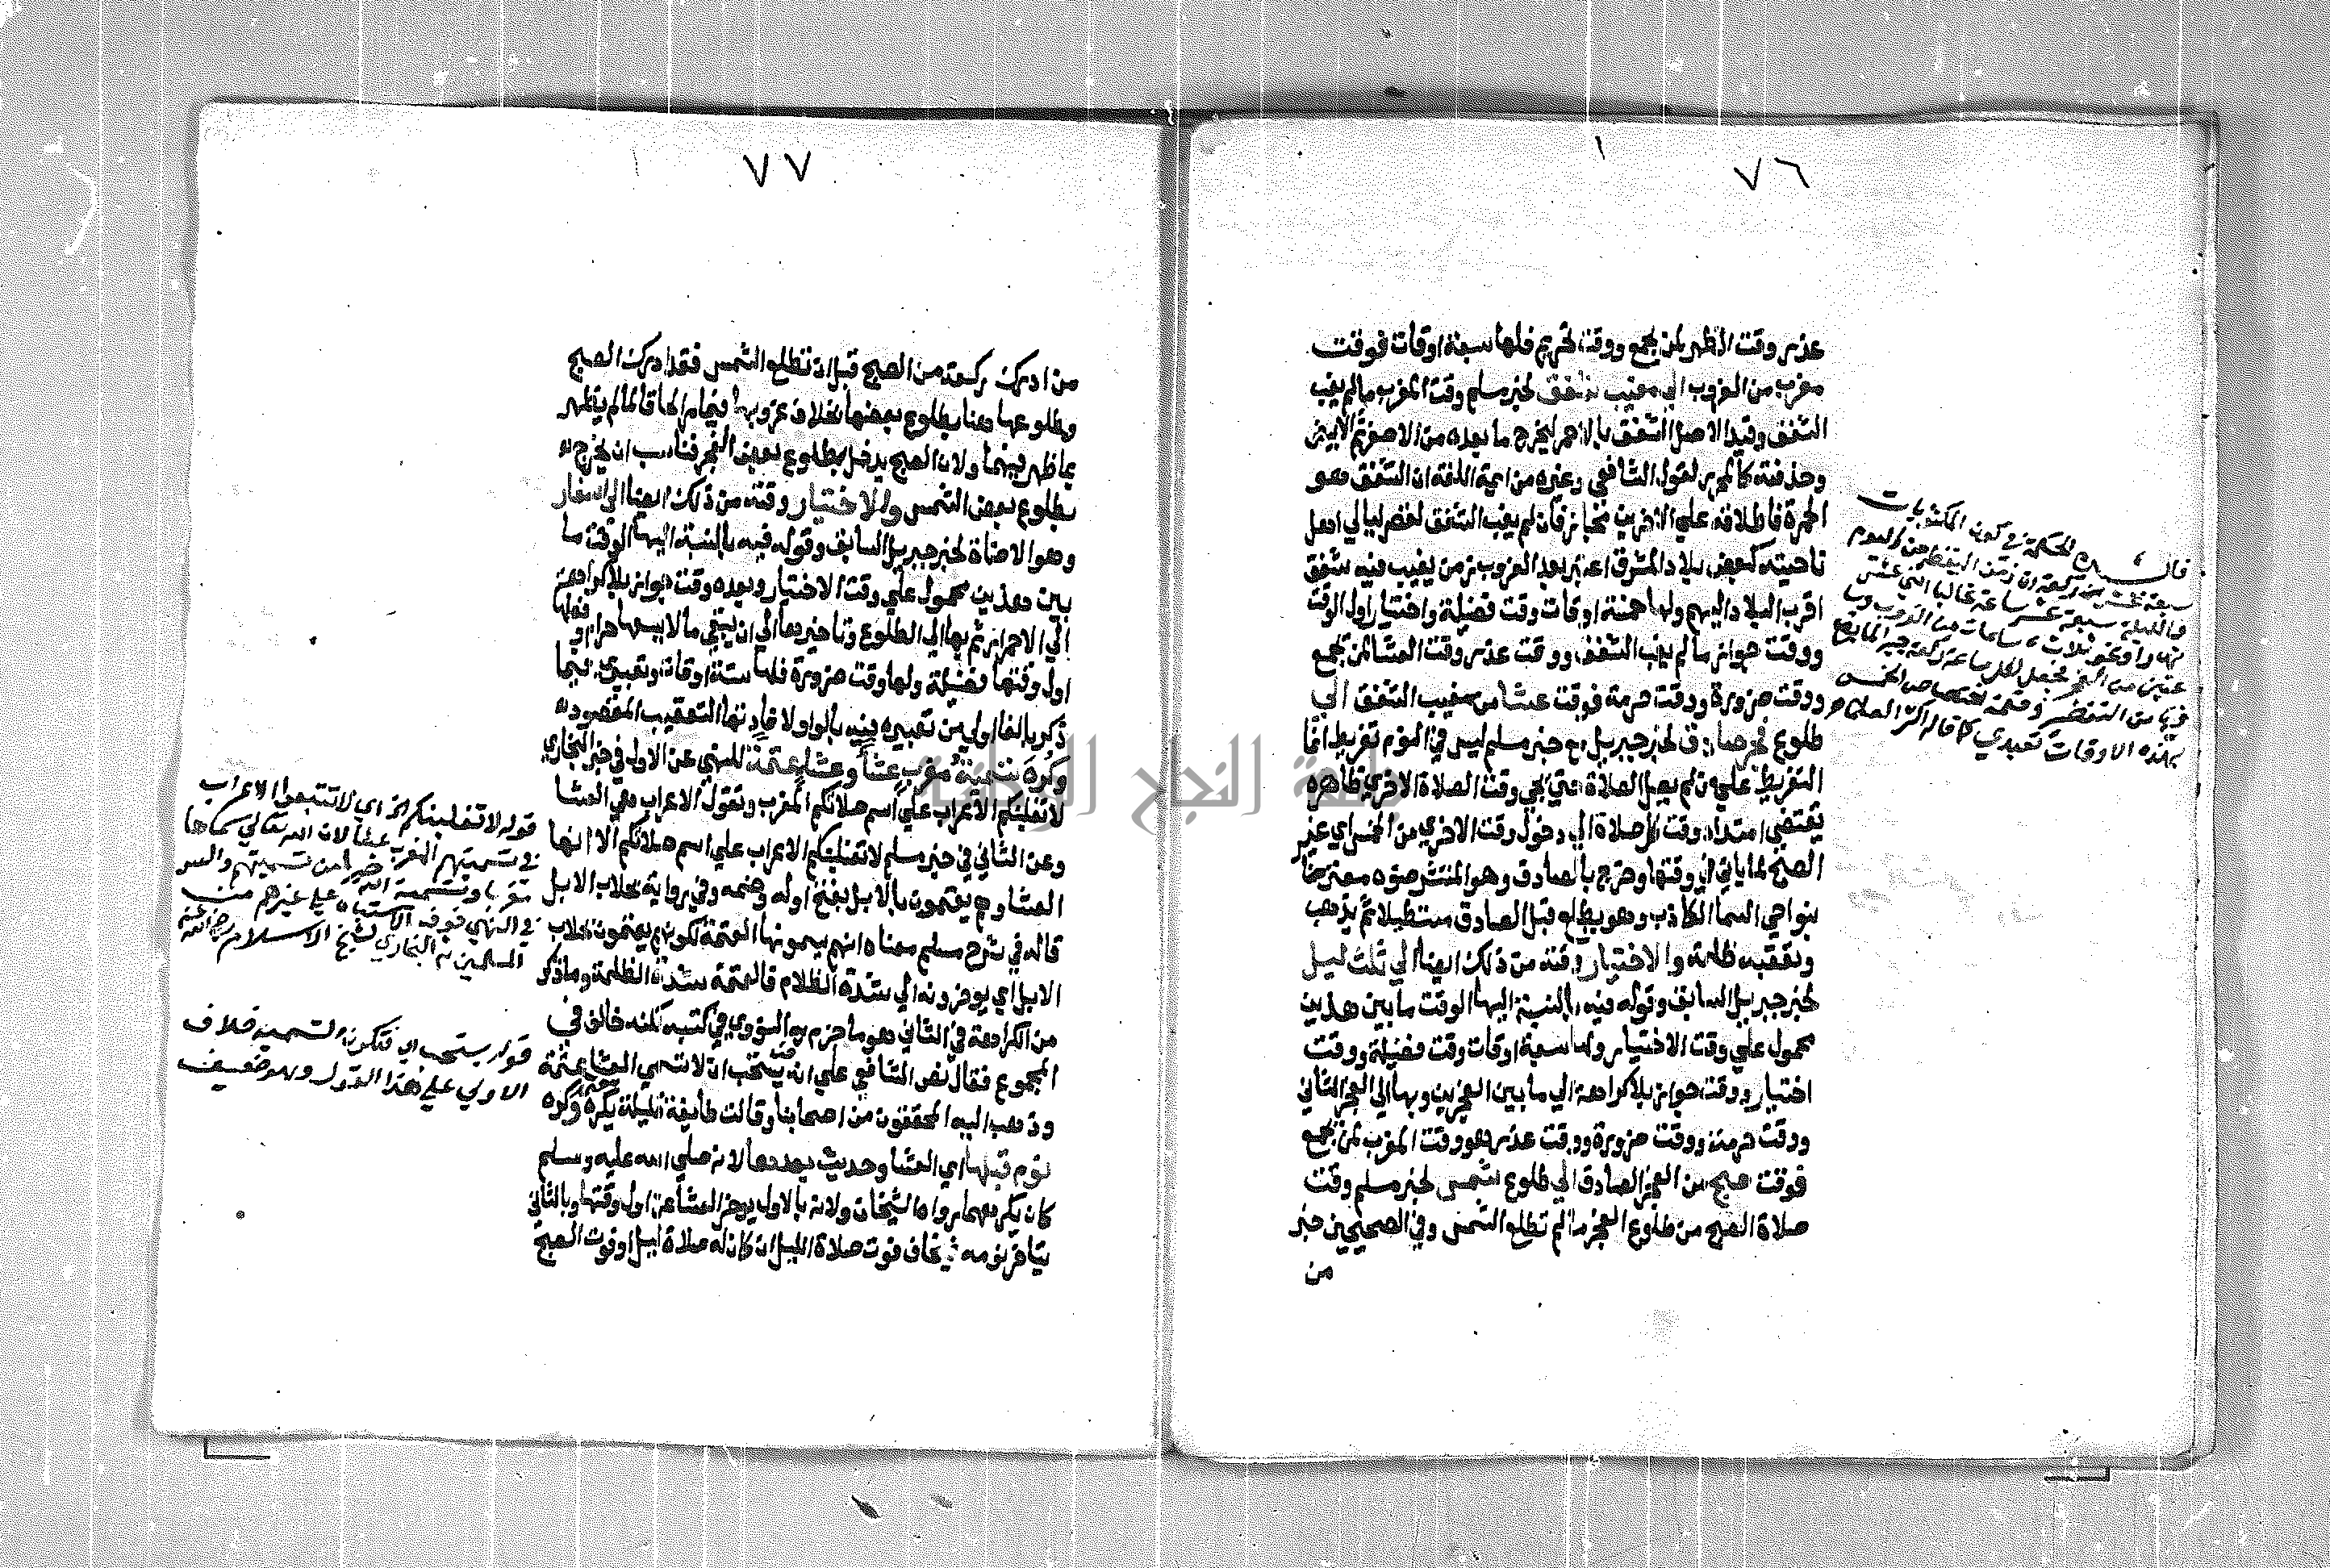 ٧٦
عذر وقت الظهر لمن يجمع ووقت تحريم فلها ستة اوقات فوقت
مغرب من الغروب الي مغيب شفق لخبر مسلم وقت المغرب ما لم يغب
الشفق وقيد الاصل الشفق بالاحمر ليخرج ما بعده من الاصفر ثم الابيض
وحذفته كالمحرر لقول الشافعي وغيره من ايمة اللغة ان الشفق هو
الحمرة فاطلاقه علي الاخرين مجاز فان لم يغب الشفق لقصر ليالي اهل
ناحيته كبعض بلاد المشرق اعتبر بعد الغروب زمن يغيب فيه شفق
اقرب البلاد اليهم ولها خمسة اوقات وقت فضيلة واختيار اول الوقت
ووقت جواز ما لم يغب الشفق ووقت عذر وقت العشا لمن يجمع
ووقت ضرورة ووقت حرمة فوقت عشا من مغيب الشفق الي
طلوع فجر صادق لخبر جبريل مع خبر مسلم ليس في النوم تفريط انما
التفريط علي من لم يصل الصلاة حتي يجي وقت الصلاة الاخري ظاهره
يقتضي امتداد وقت كل صلاة الي دخول وقت الاخري من الخمس اي غير
الصبح لما ياتي في وقتها وخرج بالصادق وهو المنتشر ضوه معترضا
بنواحي السما الكاذب وهو يطلع قبل الصادق مستطيلا ثم يذهب
وتعقبه ظلمة والاختيار وقته من ذلك ايضا الي ثلث ليل
لخبر جبريل السابق وقوله فيه بالنسبة اليها الوقت ما بين هذين
محمول علي وقت الاختيار ولها سبعة اوقات وقت فضيلة ووقت
اختيار ووقت جواز بلا كراهة الي ما بين الفجرين وبها الي الفجر الثاني
ووقت حرمة ووقت ضرورة ووقت عذر وهو وقت المغرب لمن يجمع
فوقت صبح من الفجر الصادق الي طلوع شمس لخبر مسلم وقت
صلاة الصبح من طلوع الفجر ما لم تطلع الشمس وفي الصحيحين خبر
من
قال الحكمة في كون المكتوبات
سبعة عشر ركعة ان زمن اليقظة من اليوم
والليلة سبعة عشر ساعة غالبا اثني عشر
نهارا ونحو ثلاث ساعات من الغروب وسا
عتين من الفجر فجعل لكل ساعة ركعة جبرا لما يقع
فيها من التقصير وحكمة اختصاص الخمس
بهذه الاوقات تعبدي كما قاله اكثر العلماء
٧٧
من ادرك ركعة من الصبح قبل ان تطلع الشمس فقد ادرك الصبح
وطلوعها هنا بطلوع بعضها بخلاف غروبها فيما مر الحاقا لما لم يظهر
بما ظهر فيهما ولان الصبح يدخل بطلوع بعض الفجر فناسب ان يخرج
بطلوع بعض الشمس والاختيار وقته من ذلك ايضا الي اسفار
وهو الاضاة لخبر جبريل السابق وقوله فيه بالنسبة اليها الوقت ما
بين هذين محمول علي وقت الاختيار وبعده وقت جواز بلا كراهة
الي الاحمرار ثم بها الي الطلوع وتاخيرها الي ان يبقي ما لا يسعها حرام وفعلها
اول وقتها فضيلة ولها وقت ضرورة فلها ستة اوقات وتعبيري فيما
ذكر بالفا اولي من تعبيره فيه بالواو لافادتها التعقيب المقصود
وكره تسمية مغرب عشا وعشا عتمة للنهي عن الاول في خبر البخاري
لا تغلبنكم الاعراب علي اسم صلاتكم المغرب وتقول الاعراب هي العشا
وعن الثاني في خبر مسلم لا تغلبنكم الاعراب علي اسم صلاتكم الا انها
العشا وهم يعتمون بالابل بفتح اوله وضمه وفي رواية بحلاب الابل
قال في شرح مسلم معناه انهم يسمونها العتمة لكونهم يعتمون بحلاب
الابل اي يوخرونه الي شدة الظلام فالعتمة شدة الظلمة وما ذكر
من الكراهة في الثاني هو ما جزم به النووي في كتبه لكنه خالف في
المجموع فقال نص الشافعي علي انه يستحب ان لا تسمي العشا عتمة
وذهب اليه المحققون من اصحابنا وقالت طايفة قليلة يكره وكره
نوم قبلها اي العشا وحديث بعدها لانه صلي الله عليه وسلم
كان يكرههما رواه الشيخان ولانه بالاول يوخر العشا عن اول وقتها وبالثاني
يتاخر نومه فيخاف فوت صلاة الليل ان كان له صلاة ليل او فوت الصبح
قوله لا تغلبنكم الخ اي لا تتبعوا الاعراب
في تسميتهم المغرب عشا لان الله تعالي سماها
مغربا وتسمية الله خير من تسميتهم والسر
في النهي خوف الاشتباه علي غيرهم من
المسلمين البخاري لشيخ الاسلام رضي الله عنه
قوله يستحب اي فتكون التسمية خلاف
الاولي علي هذا القول وهو ضعيف